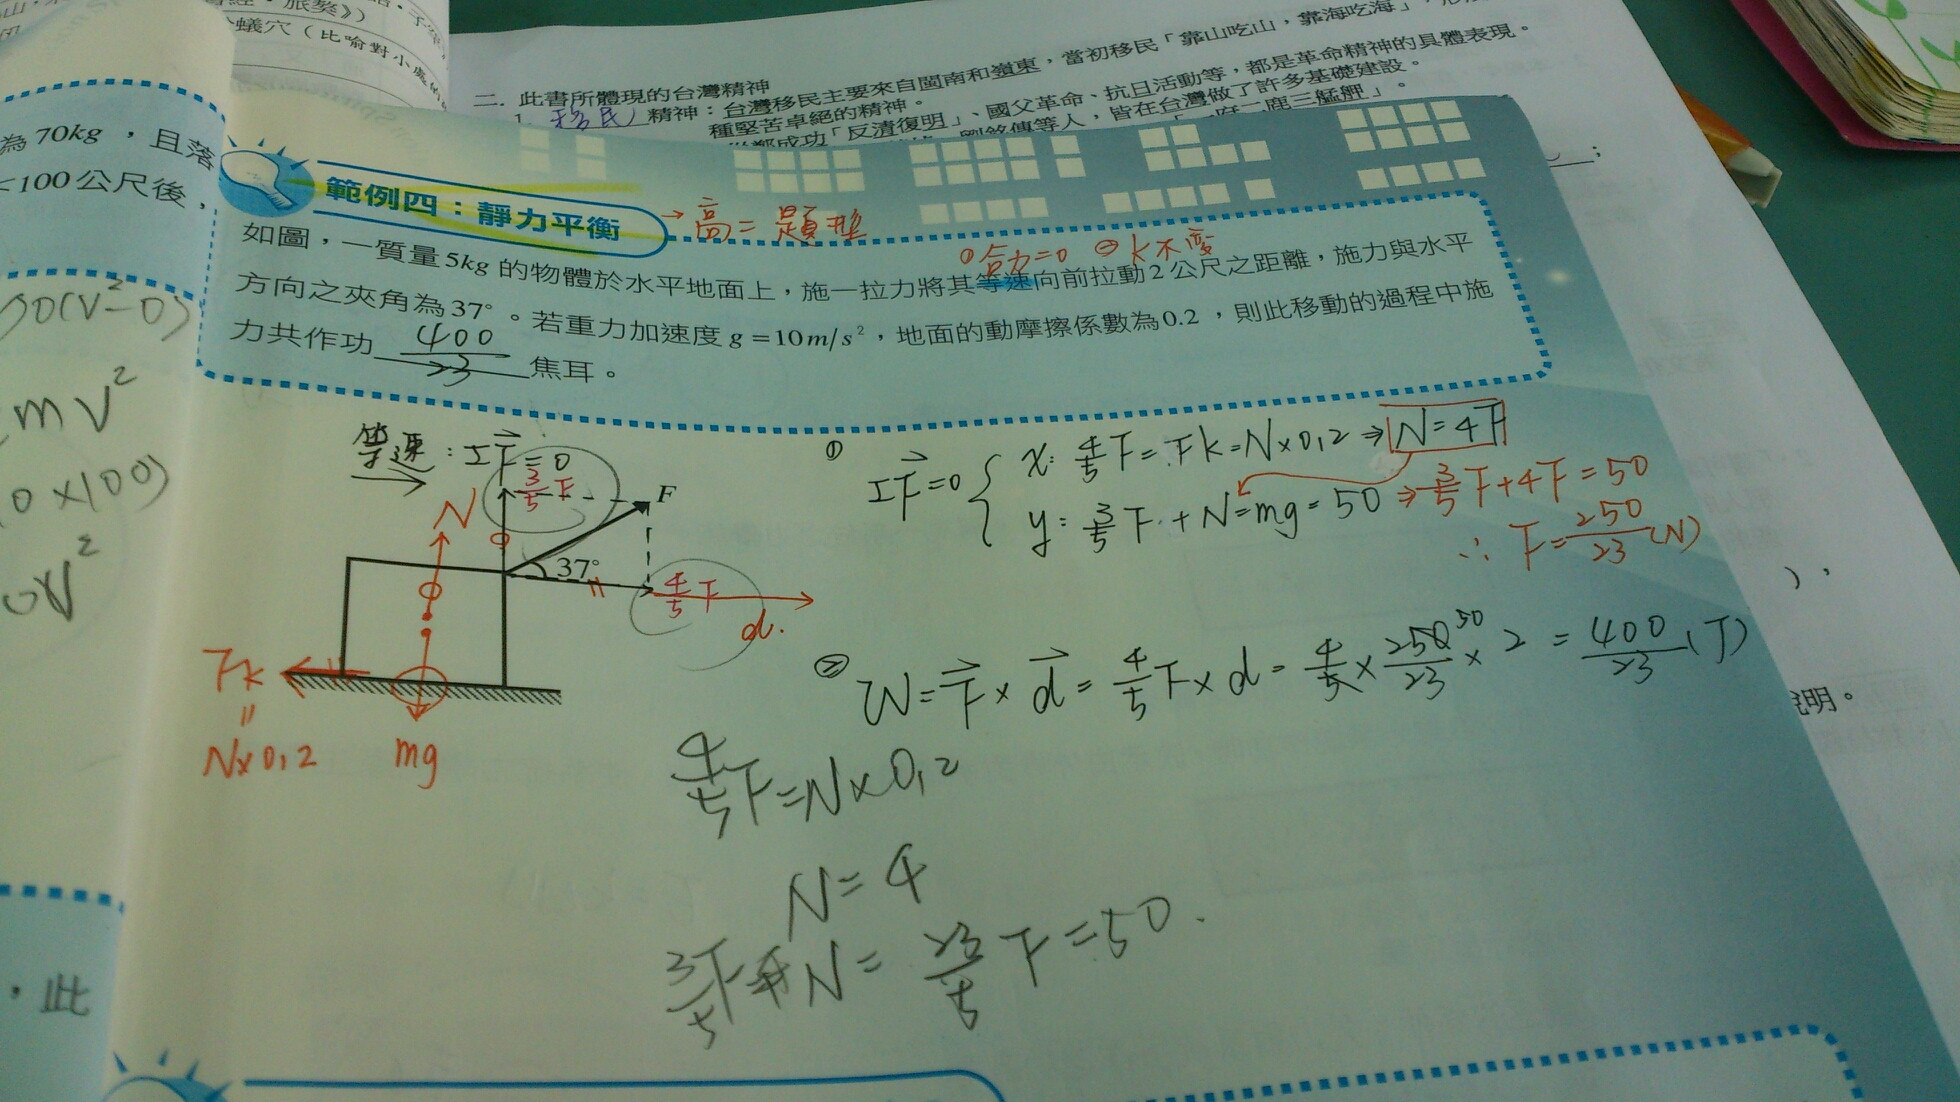 蟻穴（比喻對小處的
二. 此書所體現的台灣精神
1. 移民 精神：台灣移民主要來自閩南和嶺東，當初移民「靠山吃山，靠海吃海」，
種堅苦卓絕的精神。
「反清復明」、國父革命、抗日活動等，都是革命精神的具體表現。
等人，皆在台灣做了許多基礎建設。
一府二鹿三艋舺」。
為70kg，且落
100公尺後，
範例四：靜力平衡
→高二題型
①合力=0 ②k不變
如圖，一質量5kg的物體於水平地面上，施一拉力將其等速向前拉動2公尺之距離，施力與水平
方向之夾角為37°。若重力加速度g=10m/s²，地面的動摩擦係數為0.2，則此移動的過程中施
力共作功 400/23 焦耳。
mv²
0×100)
等速：ΣF=0
3/5 F
F
N
37°
4/5 F
d.
fk
=
N×0.2
mg
① ΣF=0 { x: 4/5 F=fk=N×0.2⇒N=4F
y: 3/5 F+N=mg=50⇒3/5 F+4F=50
∴F=250/23 (N)
② W=F×d=4/5 F×d=4/5×250/23×2=400/23 (J)
50
4/5 F=N×0.2
N=4
3/5 F+N=23/5 F=50.
說明。
，此